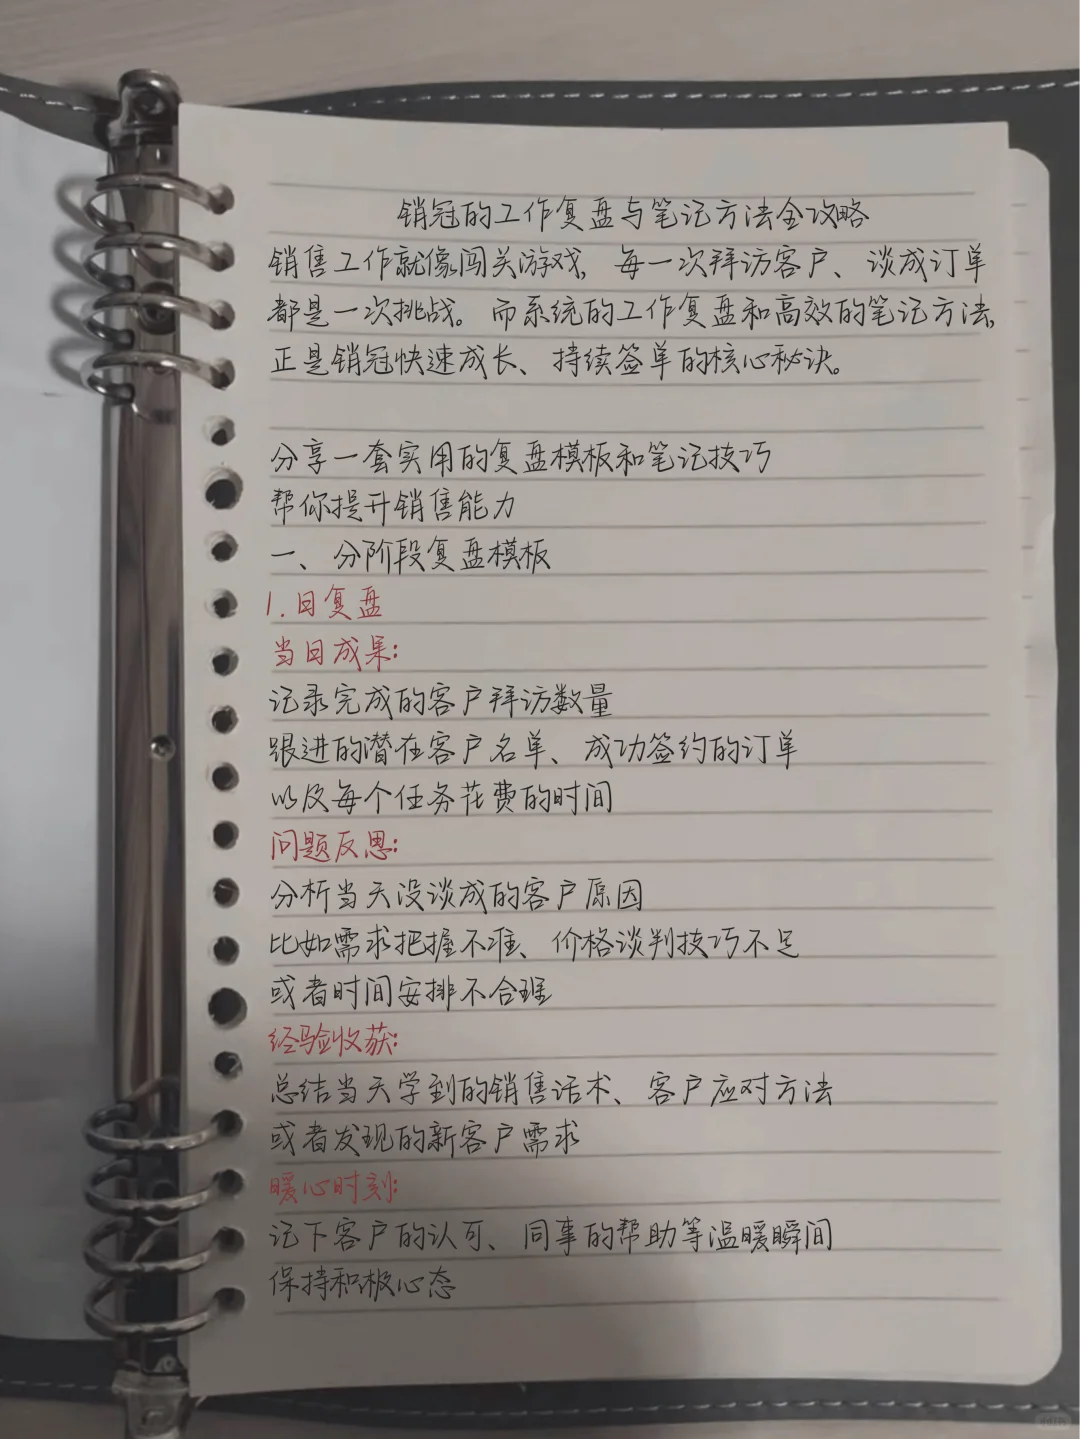 销冠的工作复盘与笔记方法全攻略
销售工作就像闯关游戏,每一次拜访客户、谈成订单
都是一次挑战。而系统的工作复盘和高效的笔记方法,
正是销冠快速成长、持续签单的核心秘诀。
分享一套实用的复盘模板和笔记技巧
帮你提升销售能力
一、分阶段复盘模板
1.日复盘
当日成果:
记录完成的客户拜访数量
跟进的潜在客户名单、成功签约的订单
以及每个任务花费的时间
问题反思:
分析当天没谈成的客户原因
比如需求把握不准、价格谈判技巧不足
或者时间安排不合理
经验收获:
总结当天学到的销售话术、客户应对方法
或者发现的新客户需求
暖心时刻:
记下客户的认可、同事的帮助等温暖瞬间
保持积极心态